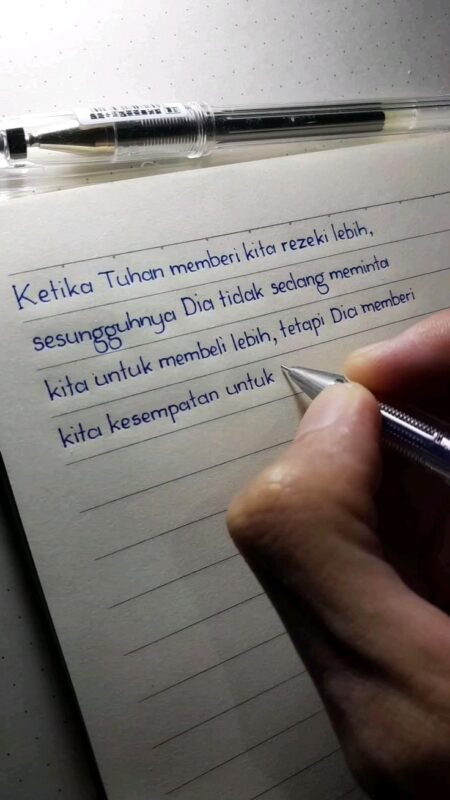 Ketika Tuhan memberi kita rezeki lebih,
sesungguhnya Dia tidak sedang meminta
kita untuk membeli lebih, tetapi Dia memberi
kita kesempatan untuk